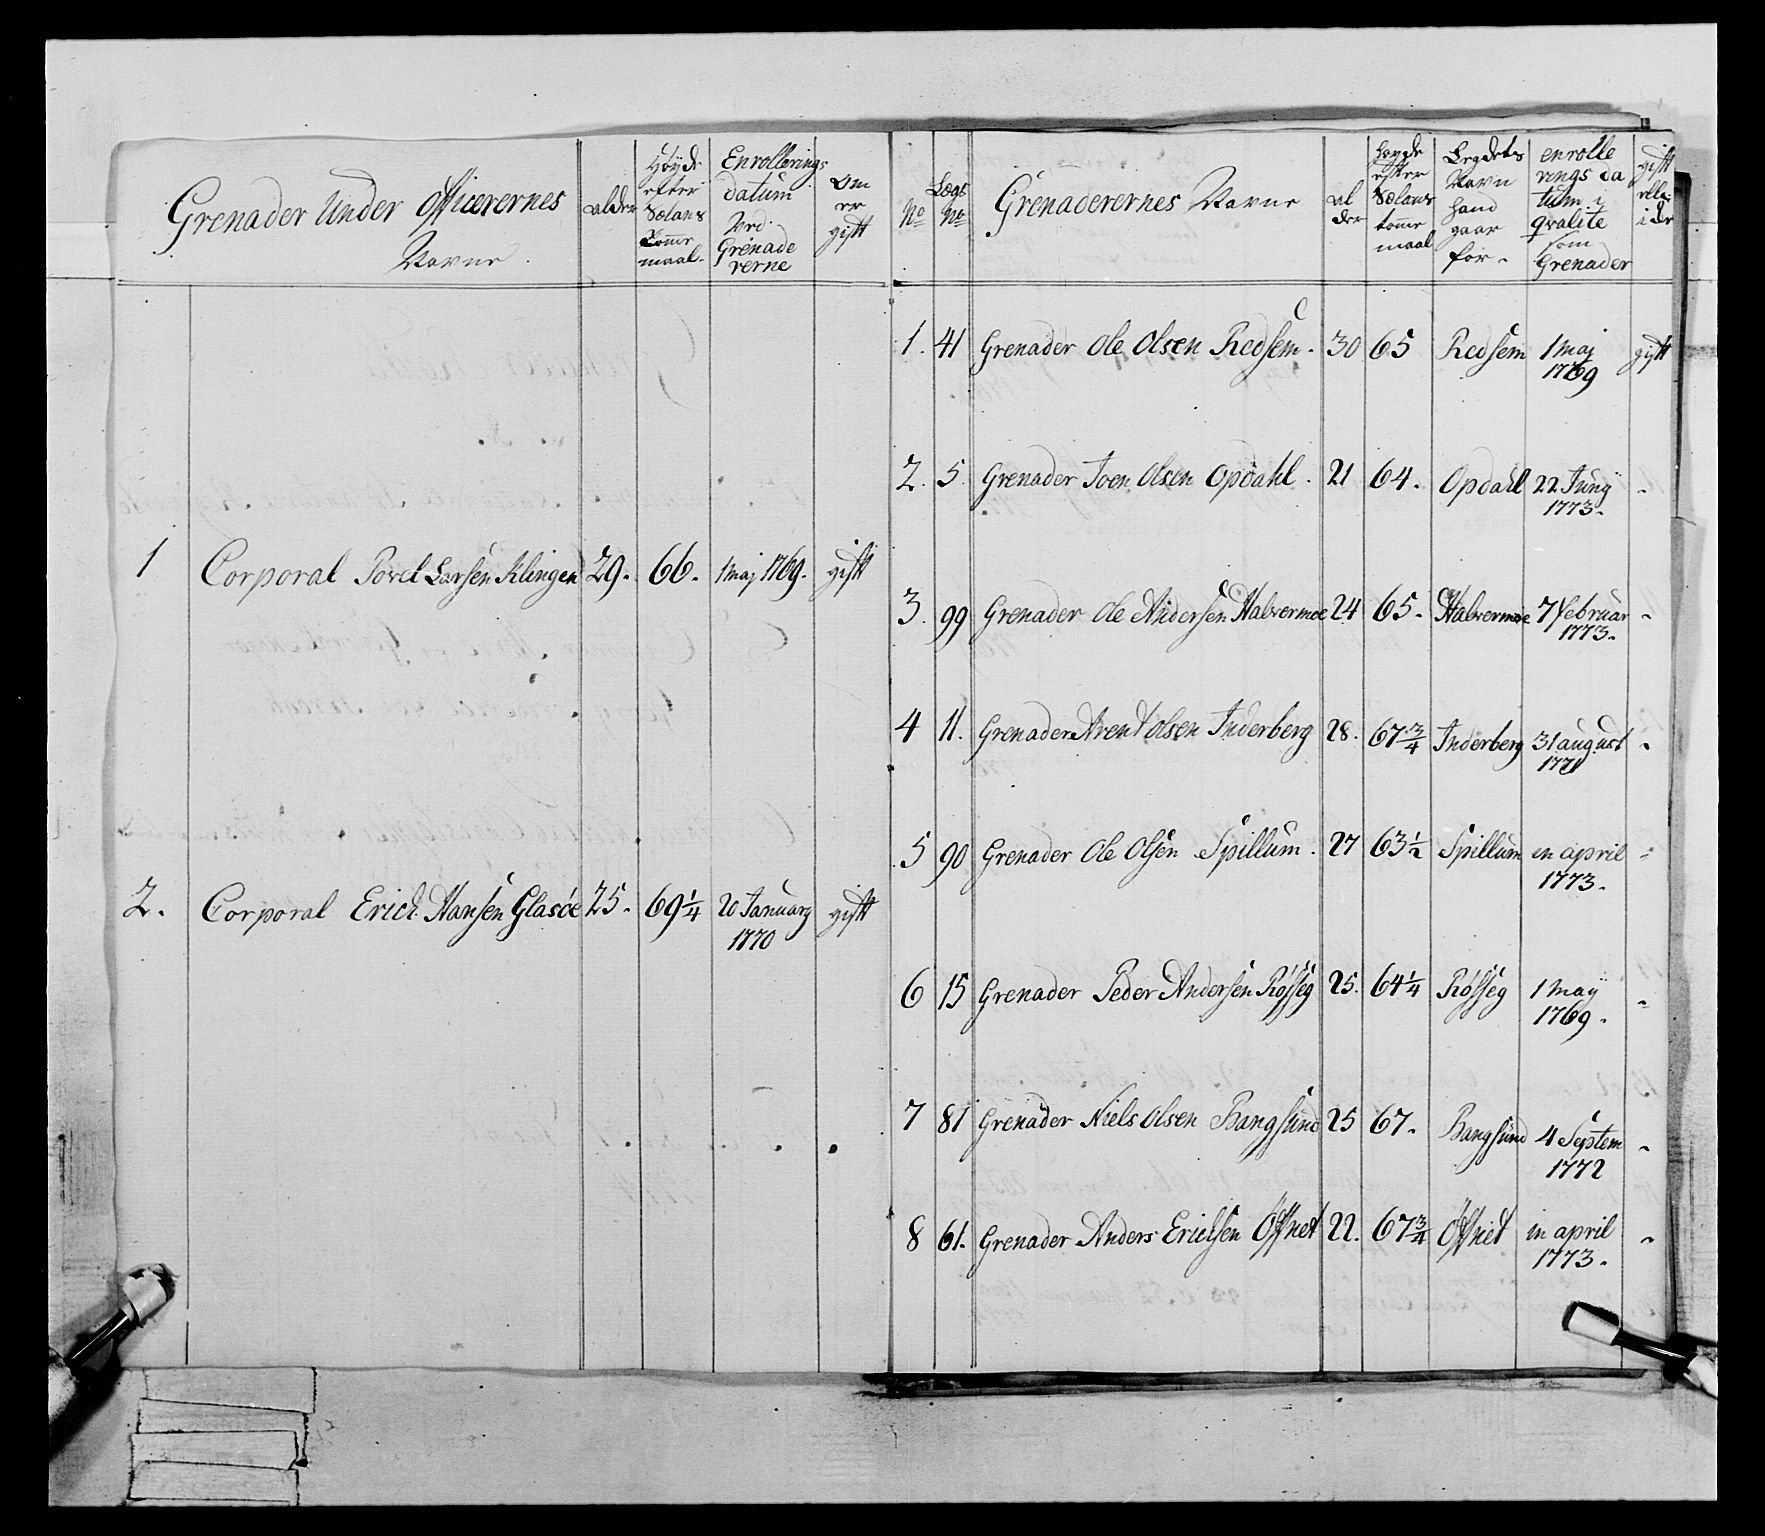 Grenader Under Officerernes
Navne
alder
Høyde
efter
Solens
Tomme
maal.
Enrollerings
datum
ved
Grenade
rerne
Om
er
gift
1 Corporal Povel Larsen Klingen 29. 66. 1 Maj 1769. gift
2. Corporal Erich Hansen Glasøe 25. 69 1/4 20 January gift
1770
No
Legs
No
Grenaderernes Navne
al
der
høyde
efter
tomme
maal
Legdets
Navn
hand
gaar
for.
enrolle
rings da
tum i
qvalite
som
Grenader
gift
eller
i de
1. 41 Grenader Ole Olsen Redsem. 30 65 Redsem 1 Maj gift
1769
2. 5. Grenader Joen Olsen Opdahl. 21 64. Opdahl 22 Junÿ -
1773.
3. 99 Grenader Ole Andersen Halvermoe 24 65. Halvermoe 7 februar -
1773.
4 11. Grenader Arent Olsen Inderberg 28. 67 3/4 Inderberg 31 august -
1771
5 90 Grenader Ole Olsen Spillum. 27 63 1/2 Spillum in april -
1773.
6 15 Grenader Peder Andersen Røsseg 25. 64 1/4 Røsseg 1 Maÿ -
1769.
7 81 Grenader Niels Olsen Bangsund 25 67. Bangsund 4 Septem -
1772
8 61. Grenader Anders Erichsen Øffnet 22. 67 3/4 Øffnet in april -
1773.